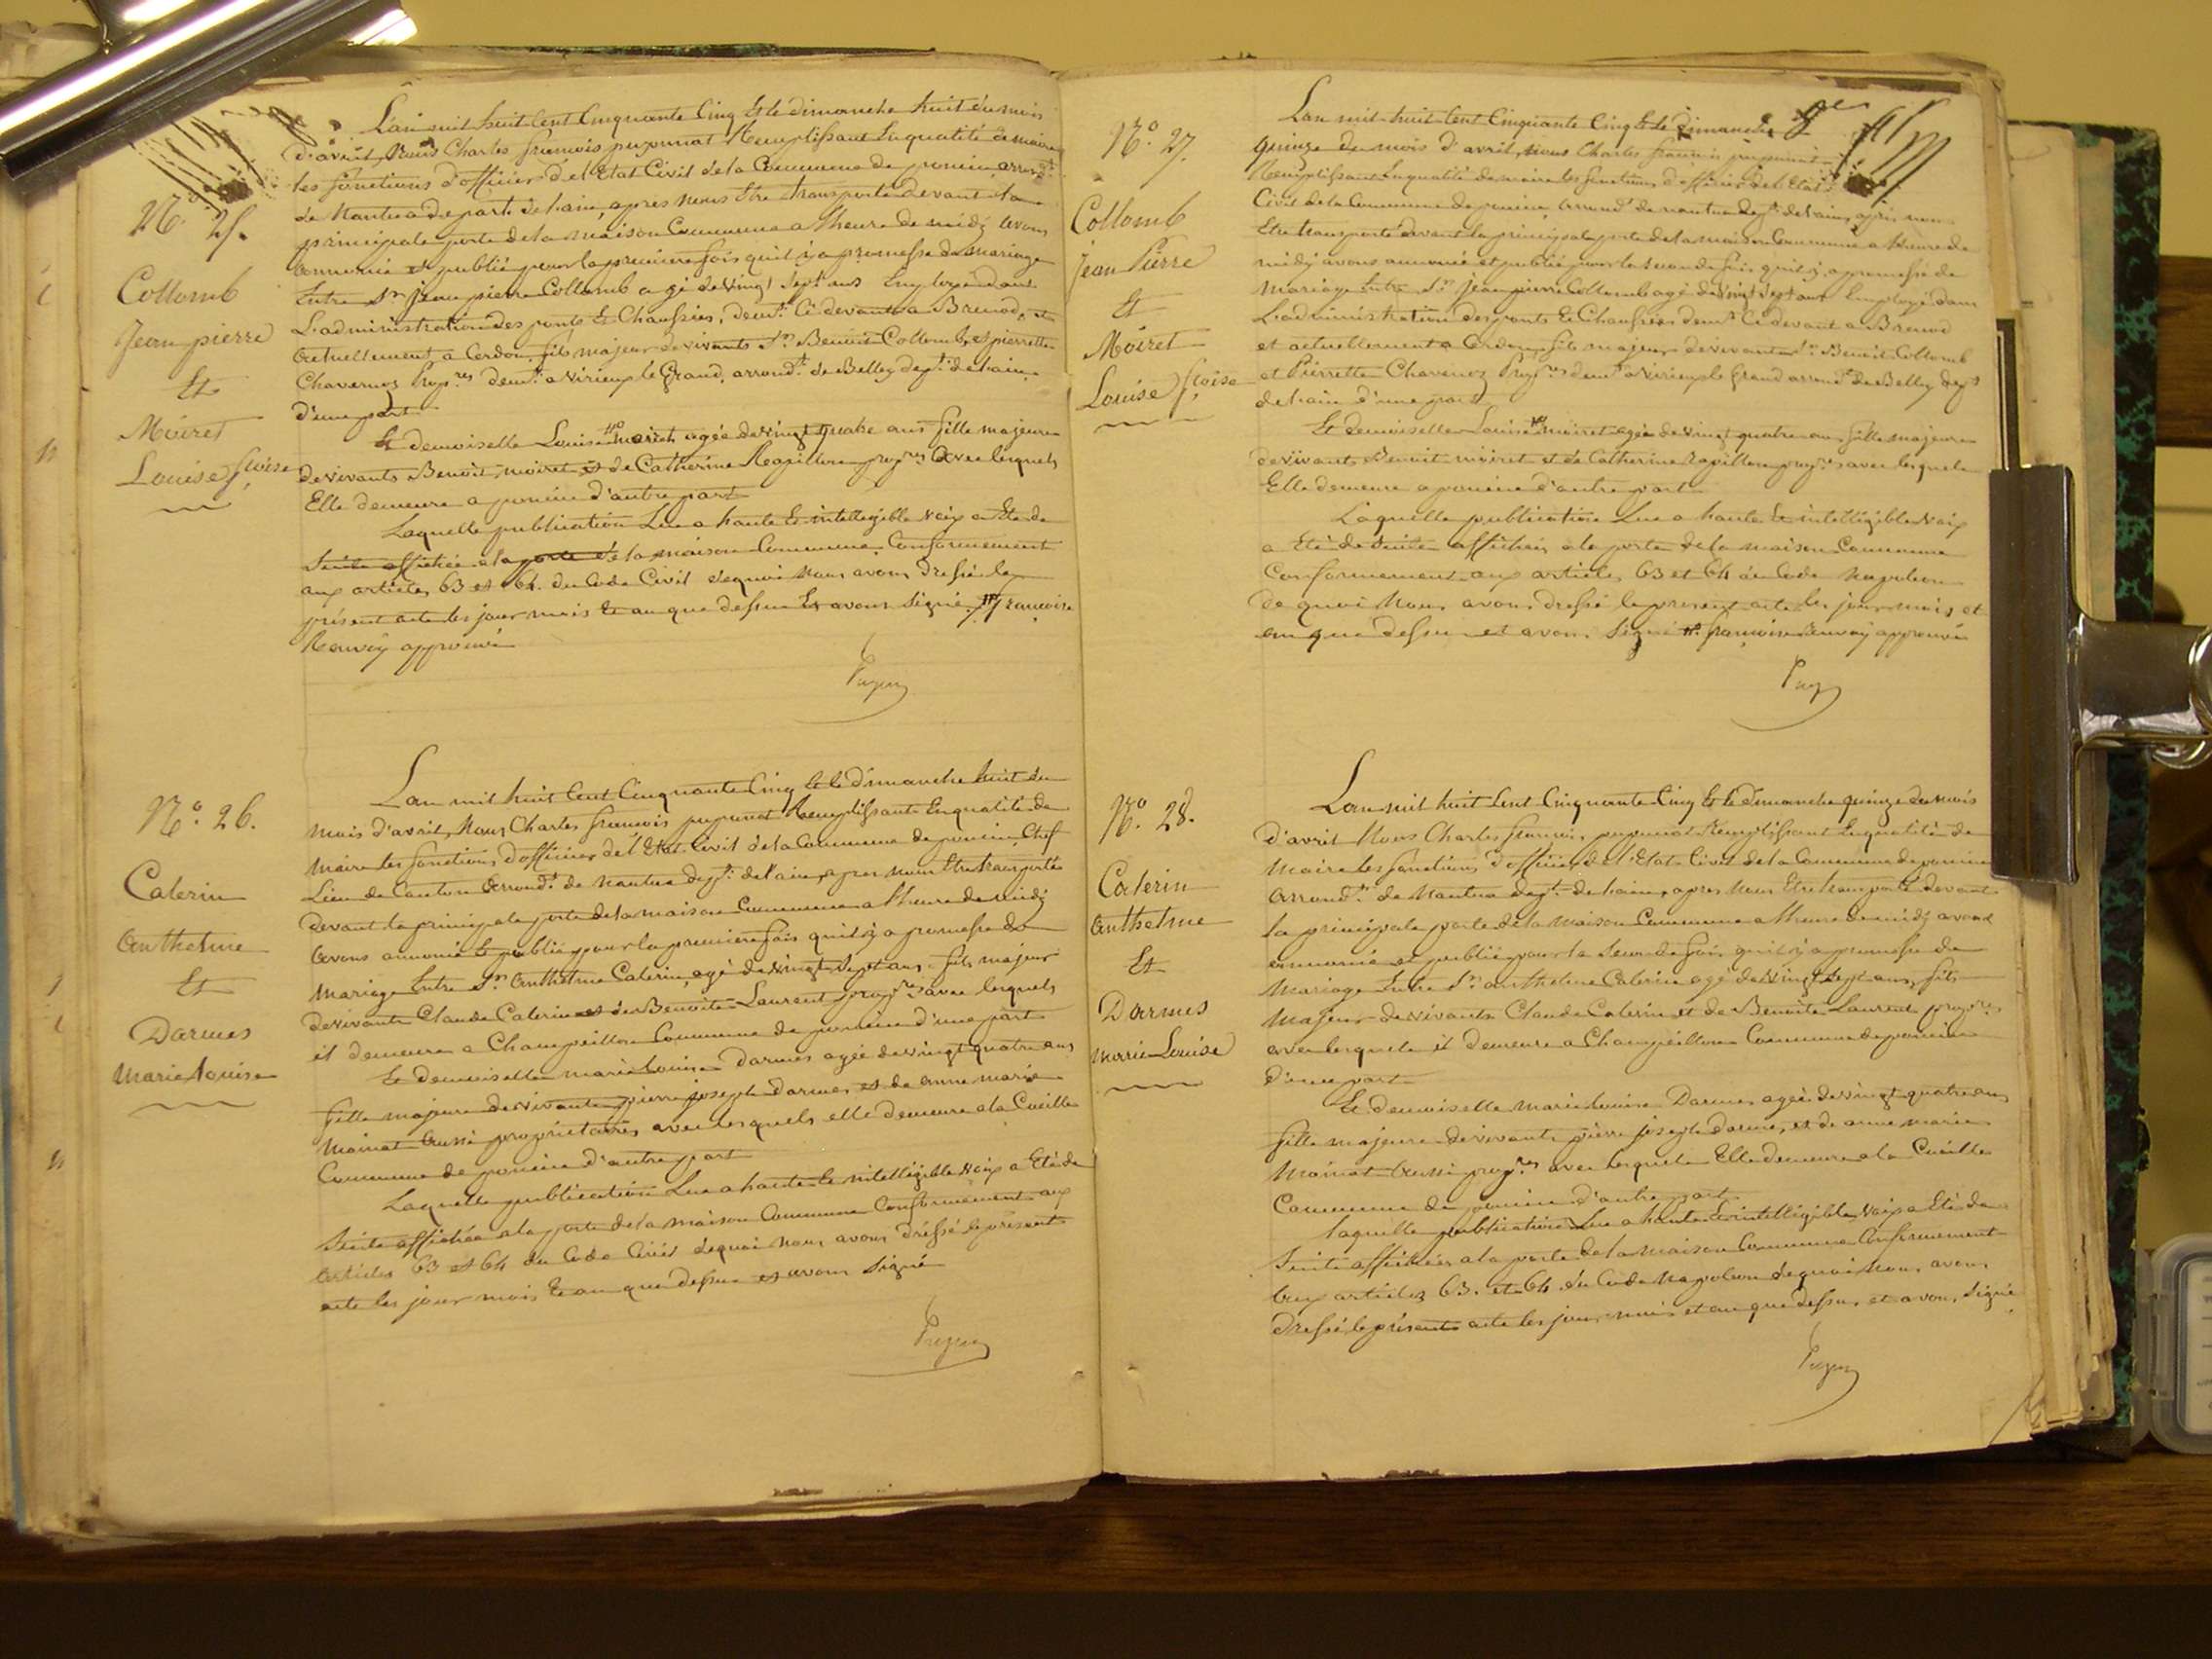 N.o 25.
Collomb
Jean pierre
Et
Moiret
Louise fcoise
L'an mil huit Cent Cinquante Cinq Et le dimanche huit du mois
d'avril, Nous Charles francois puponnat Remplissant En qualité de maire
les fonctions d'officier de l'Etat Civil de la Commune de poncin arrond.t
de Nantua depart. de l'ain, apres nous Etre transporté devant la
principale porte de la maison Commune a l'heure de midi avons
annoncé et publié pour la premiere fois qu'il y a promesse de mariage
Entre Sr. jean pierre Collomb agé de vingt Sept ans Employé dans
L'administration des ponts Et Chaussées, demt. Ci devant a Brenod, et
actuellement a Cerdon, fils majeur de vivants Sr. Benoit Collomb, et pierrette
Chavernoz Propres. demt. a Virieux le Grand, arrondt. de Belley dept. de l'ain
d'une part
Et demoiselle Louise # moiret agée de vingt quatre ans fille majeure
de vivants Benoit moiret et de Catherine Rapillon propres. avec lesquels
Elle demeure a poncin d'autre part
Laquelle publication Lue a haute Et intelligible voix a Eté de
Suite affichée a la porte de la maison Commune Conformement
aux articles 63 et 64. du Code Civil de quoi Nous avons dressé le
présent acte les jour mois Et an que dessus Et avons Signé. # francoise
Renvoy approuvé
N.o 26.
Caterin
Anthelme
Et
Darmes
Marie Louise
L'an mil huit Cent Cinquante Cinq Et le dimanche huit du
mois d'avril, Nous Charles francois puponnat Remplissant En qualité de
maire les fonctions d'officier de l'Etat Civil de la Commune de poncin, Chef
Lieu de Canton arrondt. de nantua dept. de l'ain, apres nous Etre transporté
devant la principale porte de la maison Commune a l'heure de midi
avons annoncé Et publié pour la premiere fois qu'il y a promesse de
mariage Entre Sr. Anthelme Caterin, agé de vingt Sept ans fils majeur
de vivants Claude Caterin et de Benoite Laurent propres. avec lesquels
il demeure a Champeillon Commune de poncin d'une part
Et demoiselle marie Louise Darmes agée de vingt quatre ans
fille majeure de vivants pierre joseph darmes et de anne marie
Moinat aussi propriétaires avec lesquels elle demeure a la Cueille
Commune de poncin d'autre part
Laquelle publication Lue a haute Et intelligible voix a Eté de
Suite affichée a la porte de la maison Commune Conformement aux
articles 63 et 64 du Code Civil de quoi Nous avons dréssé le présent
acte les jour mois Et an que dessus et avons Signé
N.o 27.
Collomb
Jean Pierre
Et
Moiret
Louise fcoise
L'an mil huit Cent Cinquante Cinq Et le dimanche
quinze du mois d'avril, Nous Charles francois puponnat
Remplissant En qualité de maire les fonctions d'officier de l'Etat
Civil de la Commune de poncin arrondt. de nantua dept. de l'ain, après nous
Etre transporté devant la principale porte de la maison Commune a l'heure de
midi avons annoncé et publié pour la seconde fois qu'il y a promesse de
mariage Entre Sr. jean pierre Collomb agé de vingt Sept ans Employé dans
L'administration des ponts Et Chaussées demt. Ci devant a Brenod
et actuellement a Cerdon, fils majeur de vivants Sr. Benoit Collomb
et Pierrette Chavernoz Propres. demt. a Virieux le Grand arrondt. de Belley dept
de l'ain d'une part
Et demoiselle Louise # moiret agée de vingt quatre ans fille majeure
de vivants Benoit moiret et de Catherine Rapillon propres. avec lesquels
Elle demeure a poncin d'autre part
Laquelle publication Lue a haute Et intelligible voix
a Eté de Suite affichée a la porte de la maison Commune
Conformement aux articles 63 et 64 du Code Napoleon
de quoi Nous avons dressé le present acte les jour mois et
an que dessus et avons Signé # francoise Renvoy approuvé
N.o 28.
Caterin
Anthelme
Et
Darmes
Marie Louise
L'an mil huit Cent Cinquante Cinq Et le dimanche quinze du mois
d'avril Nous Charles francois puponnat Remplissant En qualité de
Maire les fonctions d'officier de l'Etat Civil de la Commune de poncin
arrondt. de Nantua dept. de l'ain, apres nous Etre transporté devant
la principale porte de la maison Commune a l'heure de midi avons
annoncé et publié pour la Seconde fois qu'il y a promesse de
Mariage Entre Sr. anthelme Caterin agé de vingt Sept ans, fils
Majeur de vivants Claude Caterin et de Benoite Laurent propres.
avec lesquels il demeure a Champeillon Commune de poncin
d'une part
Et demoiselle marie Louise Darmes agée de vingt quatre ans
fille majeure de vivants pierre joseph darmes, et de anne marie
Moinat aussi propres. avec lesquels Elle demeure a la Cueille
Commune de poncin d'autre part
laquelle publication Lue a haute Et intelligible, voix a Eté de
Suite affichée a la porte de la maison Commune Conformement
aux articles 63. et 64 du Code Napoleon de quoi Nous, avons
dressé le présent acte les jour, mois et an que dessus, et avons, Signé